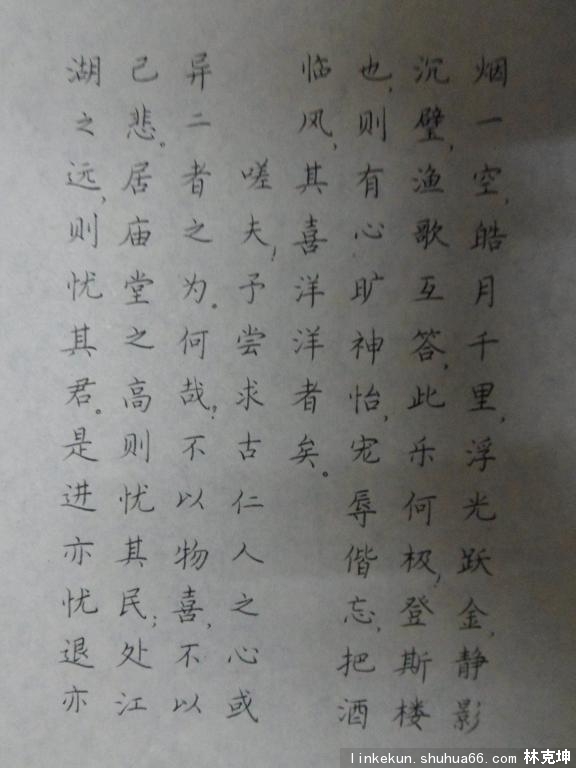 烟一空，皓月千里，浮光跃金，静影
沉璧，渔歌互答，此乐何极，登斯楼
也，则有心旷神怡，宠辱偕忘，把酒
临风，其喜洋洋者矣。
嗟夫，予尝求古仁人之心或
异二者之为。何哉，不以物喜，不以
己悲。居庙堂之高则忧其民；处江
湖之远，则忧其君。是进亦忧退亦
linkekun.shuhua66.com 林克坤